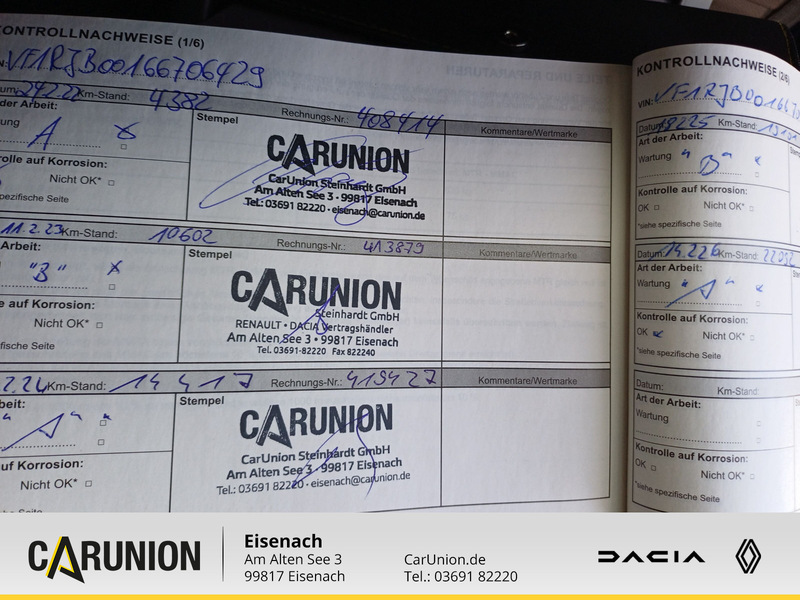 KONTROLLNACHWEISE (1/6)
VF1RJB00166706429
Km-Stand: 4382
Rechnungs-Nr.: 408414
Kommentare/Wertmarke
der Arbeit:
A x
Stempel
CARUNION
CarUnion Steinhardt GmbH
Am Alten See 3 · 99817 Eisenach
Tel.: 03691 82220 · eisenach@carunion.de
rolle auf Korrosion:
Nicht OK*
spezifische Seite
11.2.23 Km-Stand: 10602
Rechnungs-Nr.: 413879
Kommentare/Wertmarke
Arbeit:
"B" x
Stempel
CARUNION
Steinhardt GmbH
RENAULT • DACIA Vertragshändler
Am Alten See 3 • 99817 Eisenach
Tel. 03691-82220 Fax 822240
e auf Korrosion:
Nicht OK*
ezifische Seite
2.24 Km-Stand: 14417
Rechnungs-Nr.: 419427
Kommentare/Wertmarke
beit:
"A" x
Stempel
CARUNION
CarUnion Steinhardt GmbH
Am Alten See 3 · 99817 Eisenach
Tel.: 03691 82220 · eisenach@carunion.de
uf Korrosion:
Nicht OK*
fische Seite
KONTROLLNACHWEISE (2/6)
VIN: VF1RJB00166
Datum: Km-Stand:
Art der Arbeit:
Wartung "B" x
Kontrolle auf Korrosion:
OK Nicht OK*
*siehe spezifische Seite
Datum: Km-Stand:
Art der Arbeit:
Wartung "A" x
Kontrolle auf Korrosion:
OK x Nicht OK*
*siehe spezifische Seite
Datum: Km-Stand:
Art der Arbeit:
Wartung
Kontrolle auf Korrosion:
OK Nicht OK*
*siehe spezifische Seite
CARUNION
Eisenach
Am Alten See 3
99817 Eisenach
CarUnion.de
Tel.: 03691 82220
DACIA